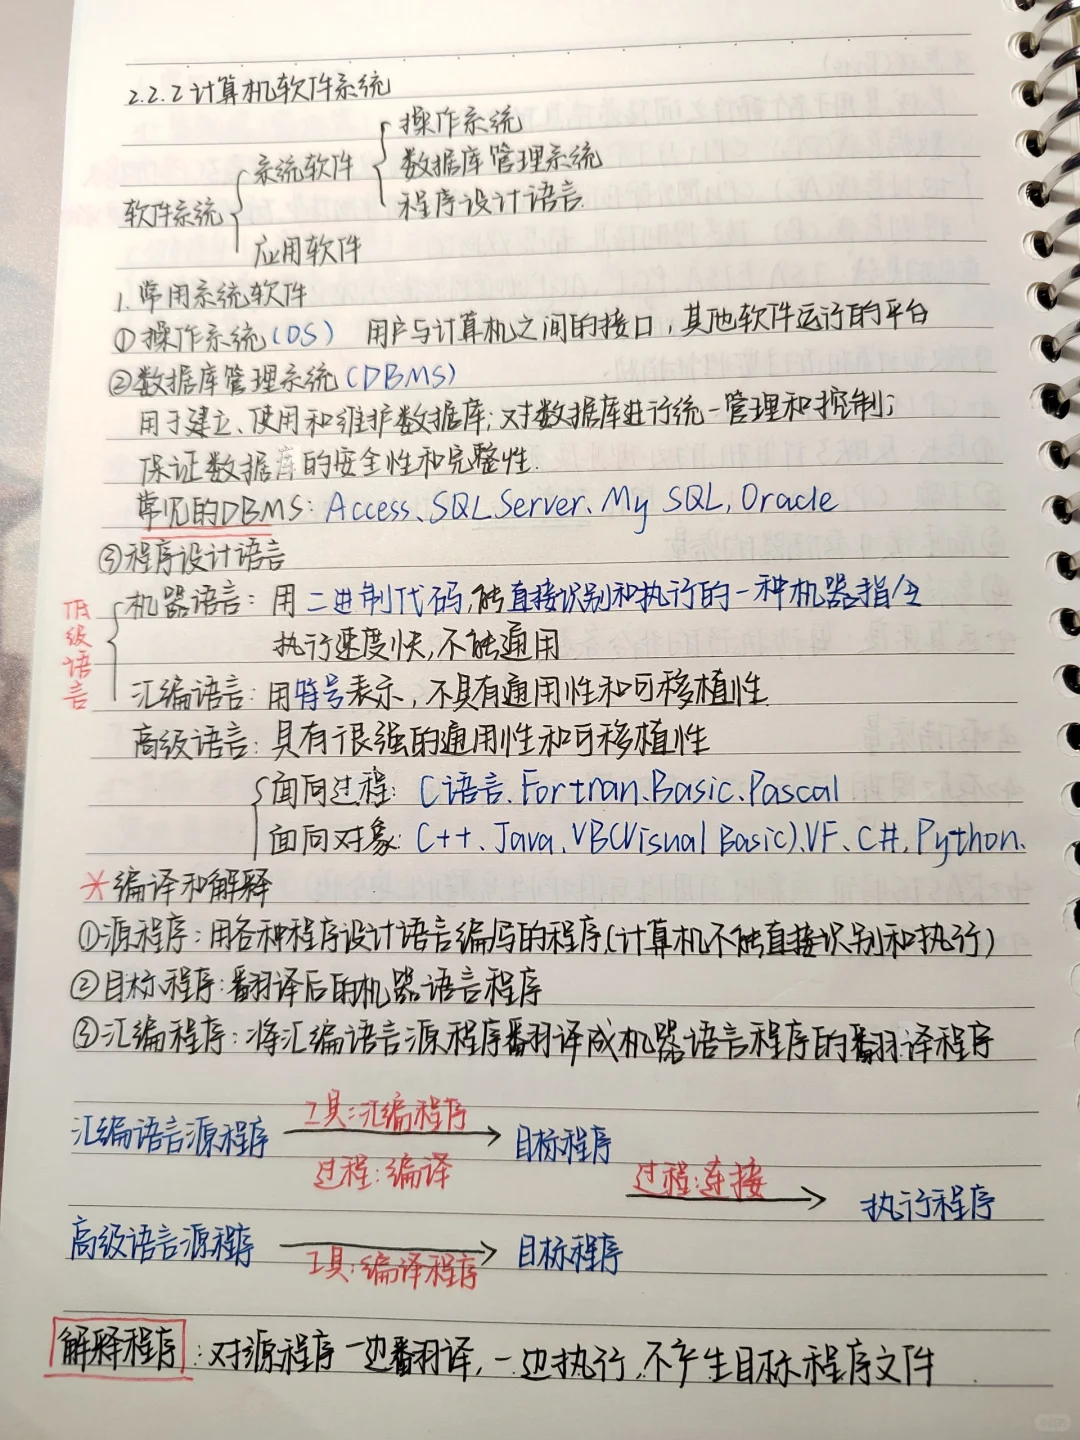 2.2.2 计算机软件系统
软件系统
系统软件
操作系统
数据库管理系统
程序设计语言
应用软件
1. 常用系统软件
①操作系统(OS) 用户与计算机之间的接口，其他软件运行的平台
②数据库管理系统(DBMS)
用于建立、使用和维护数据库；对数据库进行统一管理和控制；
保证数据库的安全性和完整性.
常见的DBMS: Access、SQL Server、My SQL, Oracle
③程序设计语言
低级语言
机器语言: 用二进制代码,能直接识别和执行的一种机器指令
执行速度快,不能通用
汇编语言: 用符号表示, 不具有通用性和可移植性
高级语言: 具有很强的通用性和可移植性
面向过程: C语言、Fortran、Basic、Pascal
面向对象: C++、Java、VB(Visual Basic)、VF、C#, Python、
*编译和解释
①源程序: 用各种程序设计语言编写的程序(计算机不能直接识别和执行)
②目标程序: 翻译后的机器语言程序
③汇编程序: 将汇编语言源程序翻译成机器语言程序的翻译程序
汇编语言源程序 工具:汇编程序 目标程序
过程:编译
过程:连接 执行程序
高级语言源程序 工具:编译程序 目标程序
解释程序: 对源程序一边翻译, 一边执行, 不产生目标程序文件.